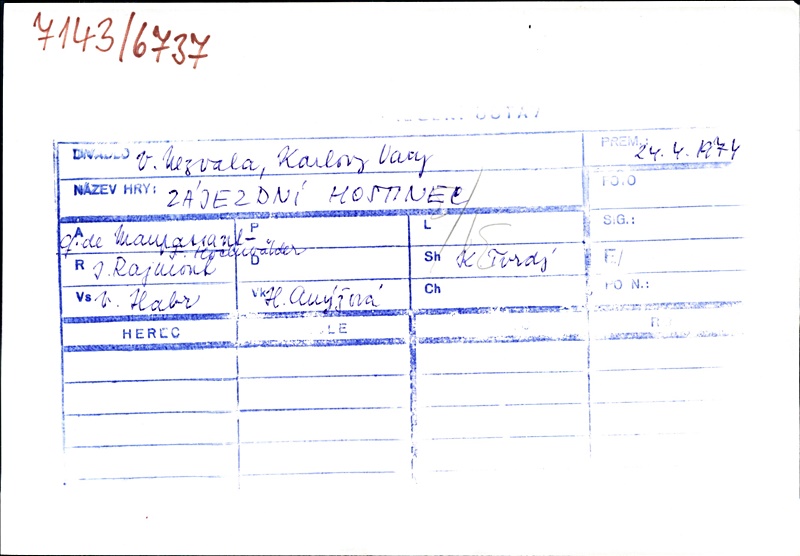 7143/6737
DIVADLO V. Nezvala, Karlovy Vary PREM.: 24. 4. 1974
NÁZEV HRY: ZÁJEZDNÍ HOSTINEC
A G. de Maupassant - P L S.G.:
F. Hochwälder
R J. Rajmont Sh K. Tvrdý
Vs V. Habr Vk H. Anýžová Ch PO N.:
HEREC